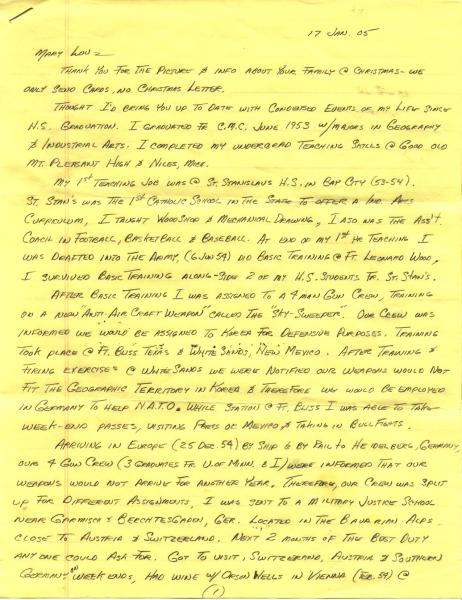 17 JAN. 05
MARY LOU -
THANK YOU FOR THE PICTURE & INFO ABOUT YOUR FAMILY @ CHRISTMAS - WE
ONLY SEND CARDS, NO CHRISTMAS LETTER.
THOUGHT I'D BRING YOU UP TO DATE WITH CONDENSED EVENTS OF MY LIFE SINCE
H.S. GRADUATION. I GRADUATED FR C.M.C. JUNE 1953 W/MAJORS IN GEOGRAPHY
& INDUSTRIAL ARTS. I COMPLETED MY UNDERGRAD TEACHING SKILLS @ GOOD OLD
MT. PLEASANT HIGH & NILES, MICH.
MY 1ST TEACHING JOB WAS @ ST. STANISLAUS H.S. IN BAY CITY (53-54).
ST. STAN'S WAS THE 1ST CATHOLIC SCHOOL IN THE STATE TO OFFER A IND. ARTS
CURRICULUM, I TAUGHT WOODSHOP & MECHANICAL DRAWING, I ALSO WAS THE ASS'T.
COACH IN FOOTBALL, BASKETBALL & BASEBALL. AT END OF MY 1ST YR TEACHING I
WAS DRAFTED INTO THE ARMY, (6 JUN 54) DID BASIC TRAINING @ FT. LEONARD WOOD,
I SURVIVED BASIC TRAINING ALONG-SIDE 2 OF MY H.S. STUDENTS FR. ST. STAN'S.
AFTER BASIC TRAINING I WAS ASSIGNED TO A 4 MAN GUN CREW, TRAINING
ON A NEW ANTI-AIR CRAFT WEAPON CALLED THE "SKY-SWEEPER". OUR CREW WAS
INFORMED WE WOULD BE ASSIGNED TO KOREA FOR DEFENSIVE PURPOSES. TRAINING
TOOK PLACE @ FT. BLISS TEXAS & WHITE SANDS, NEW MEXICO. AFTER TRAINING &
FIRING EXERCISES @ WHITE SANDS WE WERE NOTIFIED OUR WEAPONS WOULD NOT
FIT THE GEOGRAPHIC TERRITORY IN KOREA & THEREFORE WE WOULD BE EMPLOYED
IN GERMANY TO HELP N.A.T.O. WHILE STATION @ FT. BLISS I WAS ABLE TO TAKE
WEEK-END PASSES, VISITING PARTS OF MEXICO & TAKING IN BULL FIGHTS.
ARRIVING IN EUROPE (25 DEC. 54) BY SHIP & BY RAIL TO HEIDELBURG, GERMANY,
OUR 4 GUN CREW (3 GRADUATES FR. U. OF MINN. & I) WERE INFORMED THAT OUR
WEAPONS WOULD NOT ARRIVE FOR ANOTHER YEAR. THEREFORE, OUR CREW WAS SPLIT
UP FOR DIFFERENT ASSIGNMENTS, I WAS SENT TO A MILITARY JUSTICE SCHOOL
NEAR GARMISH & BERCHTESGADEN, GER. LOCATED IN THE BAVARIAN ALPS
CLOSE TO AUSTRIA & SWITZERLAND. NEXT 2 MONTHS OF THE BEST DUTY
ANY ONE COULD ASK FOR. GOT TO VISIT, SWITZERLAND, AUSTRIA & SOUTHERN
GERMANY ON WEEK ENDS, HAD WINE W/ ORSON WELLS IN VIENNA (FEB. 54) @
(1)